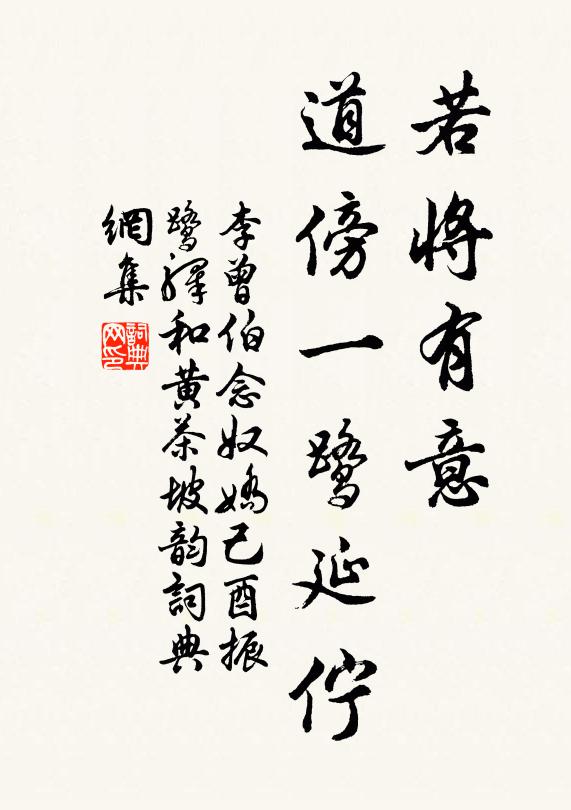 若将有意
道傍一鹭延伫
李曾伯念奴娇己酉振
鹭驿和黄茶坡韵詞典
網集
詞典网印